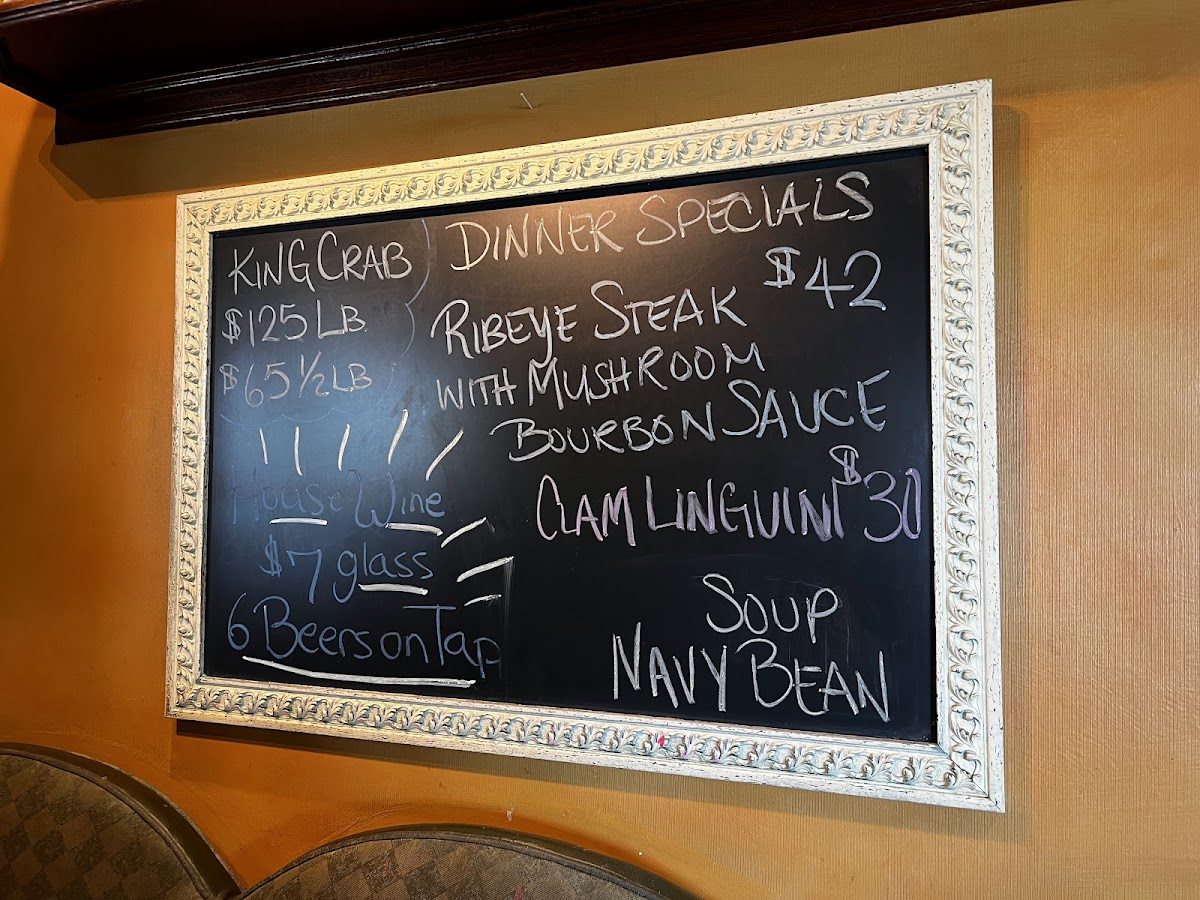 KING CRAB
$125 LB
$65 ½ LB
House Wine
$7 glass
6 Beers on Tap
DINNER SPECIALS
$42
RIBEYE STEAK
WITH MUSHROOM
BOURBON SAUCE
CLAM LINGUINI $30
SOUP
NAVY BEAN